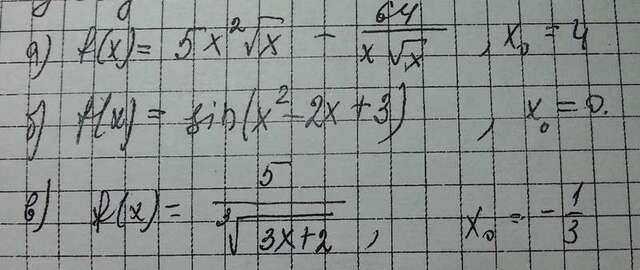 а) f(x) = 5x²√x − 64/(x√x), x₀ = 4
б) f(x) = sin(x² − 2x + 3), x₀ = 0.
в) f(x) = 5/∛(3x+2), x₀ = −1/3